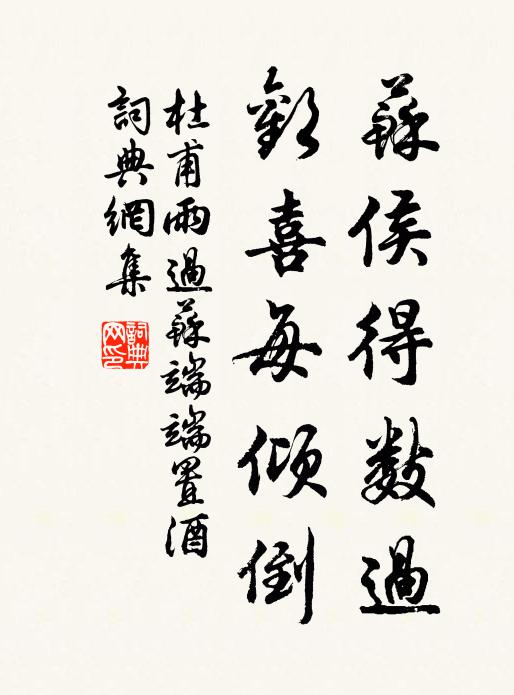 蘇侯得數過
歡喜每傾倒
杜甫雨過蘇端端置酒
詞典網集
詞典網印